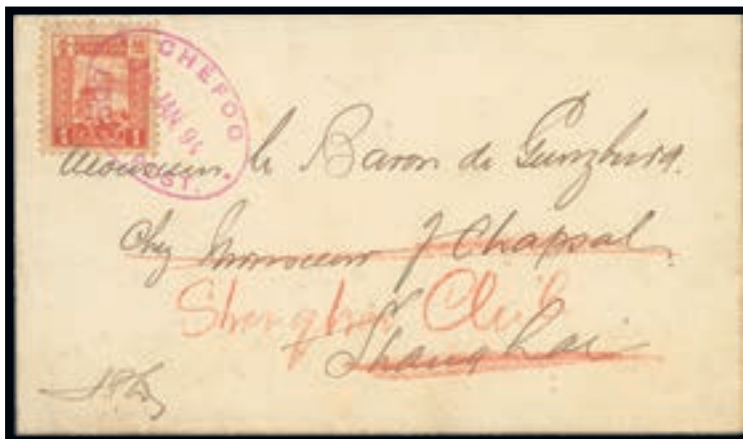 CHEFOO
JAN 94
POST.
1 1
Monsieur le Baron de Gunzburg.
Chez Monsieur J Chapsal.
Shanghai Club
Shanghai